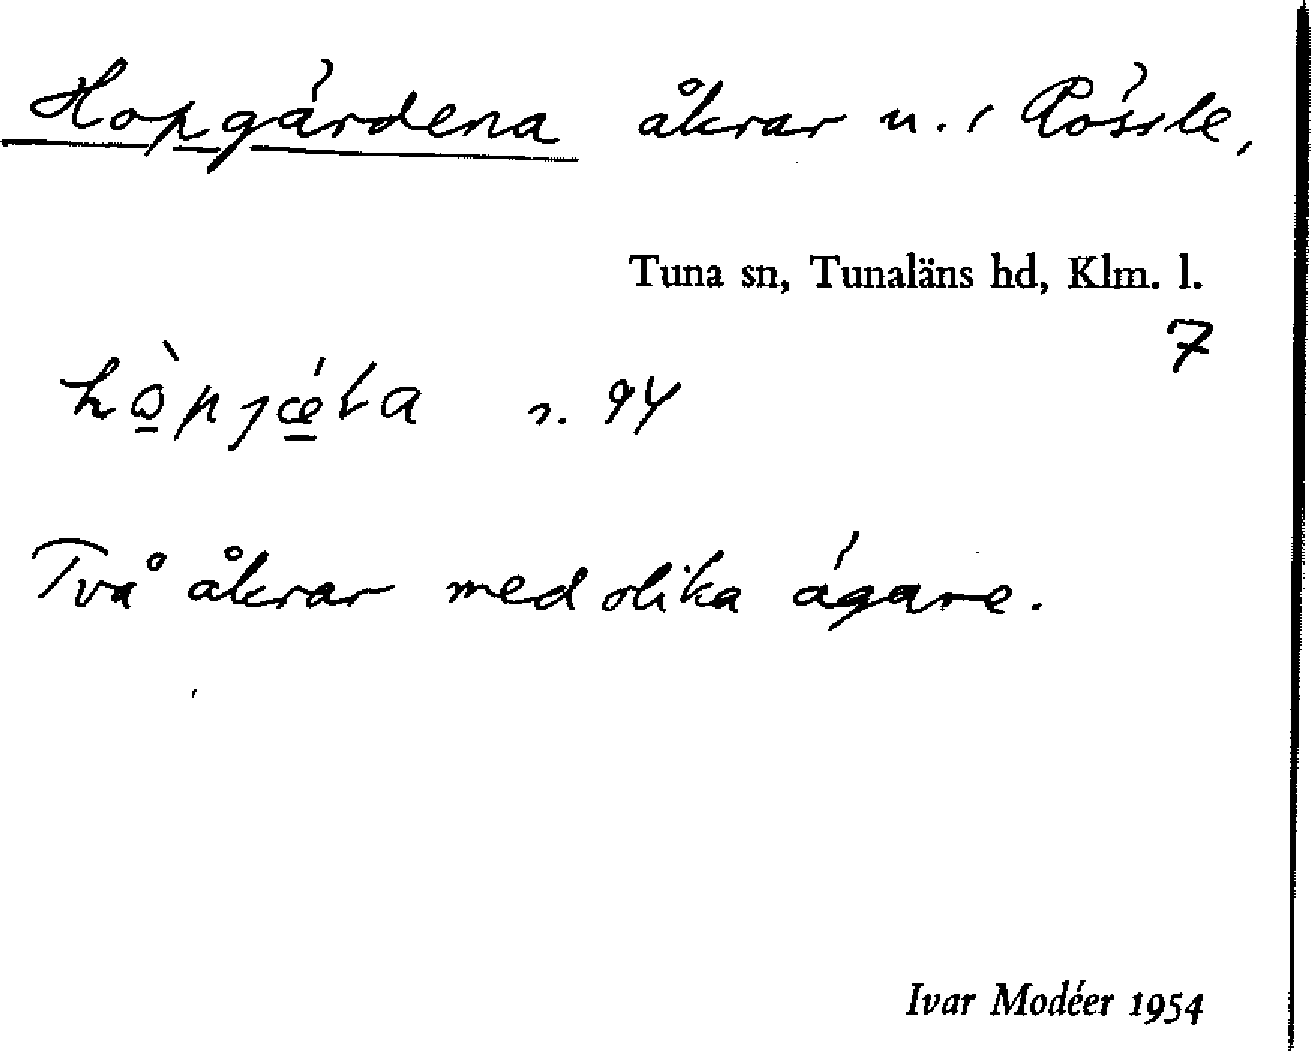 Hopgärdena åkrar n. i Rössle,
Tuna sn, Tunaläns hd, Klm. l.
7
s. 94
Två åkrar med olika ägare.
Ivar Modéer 1954